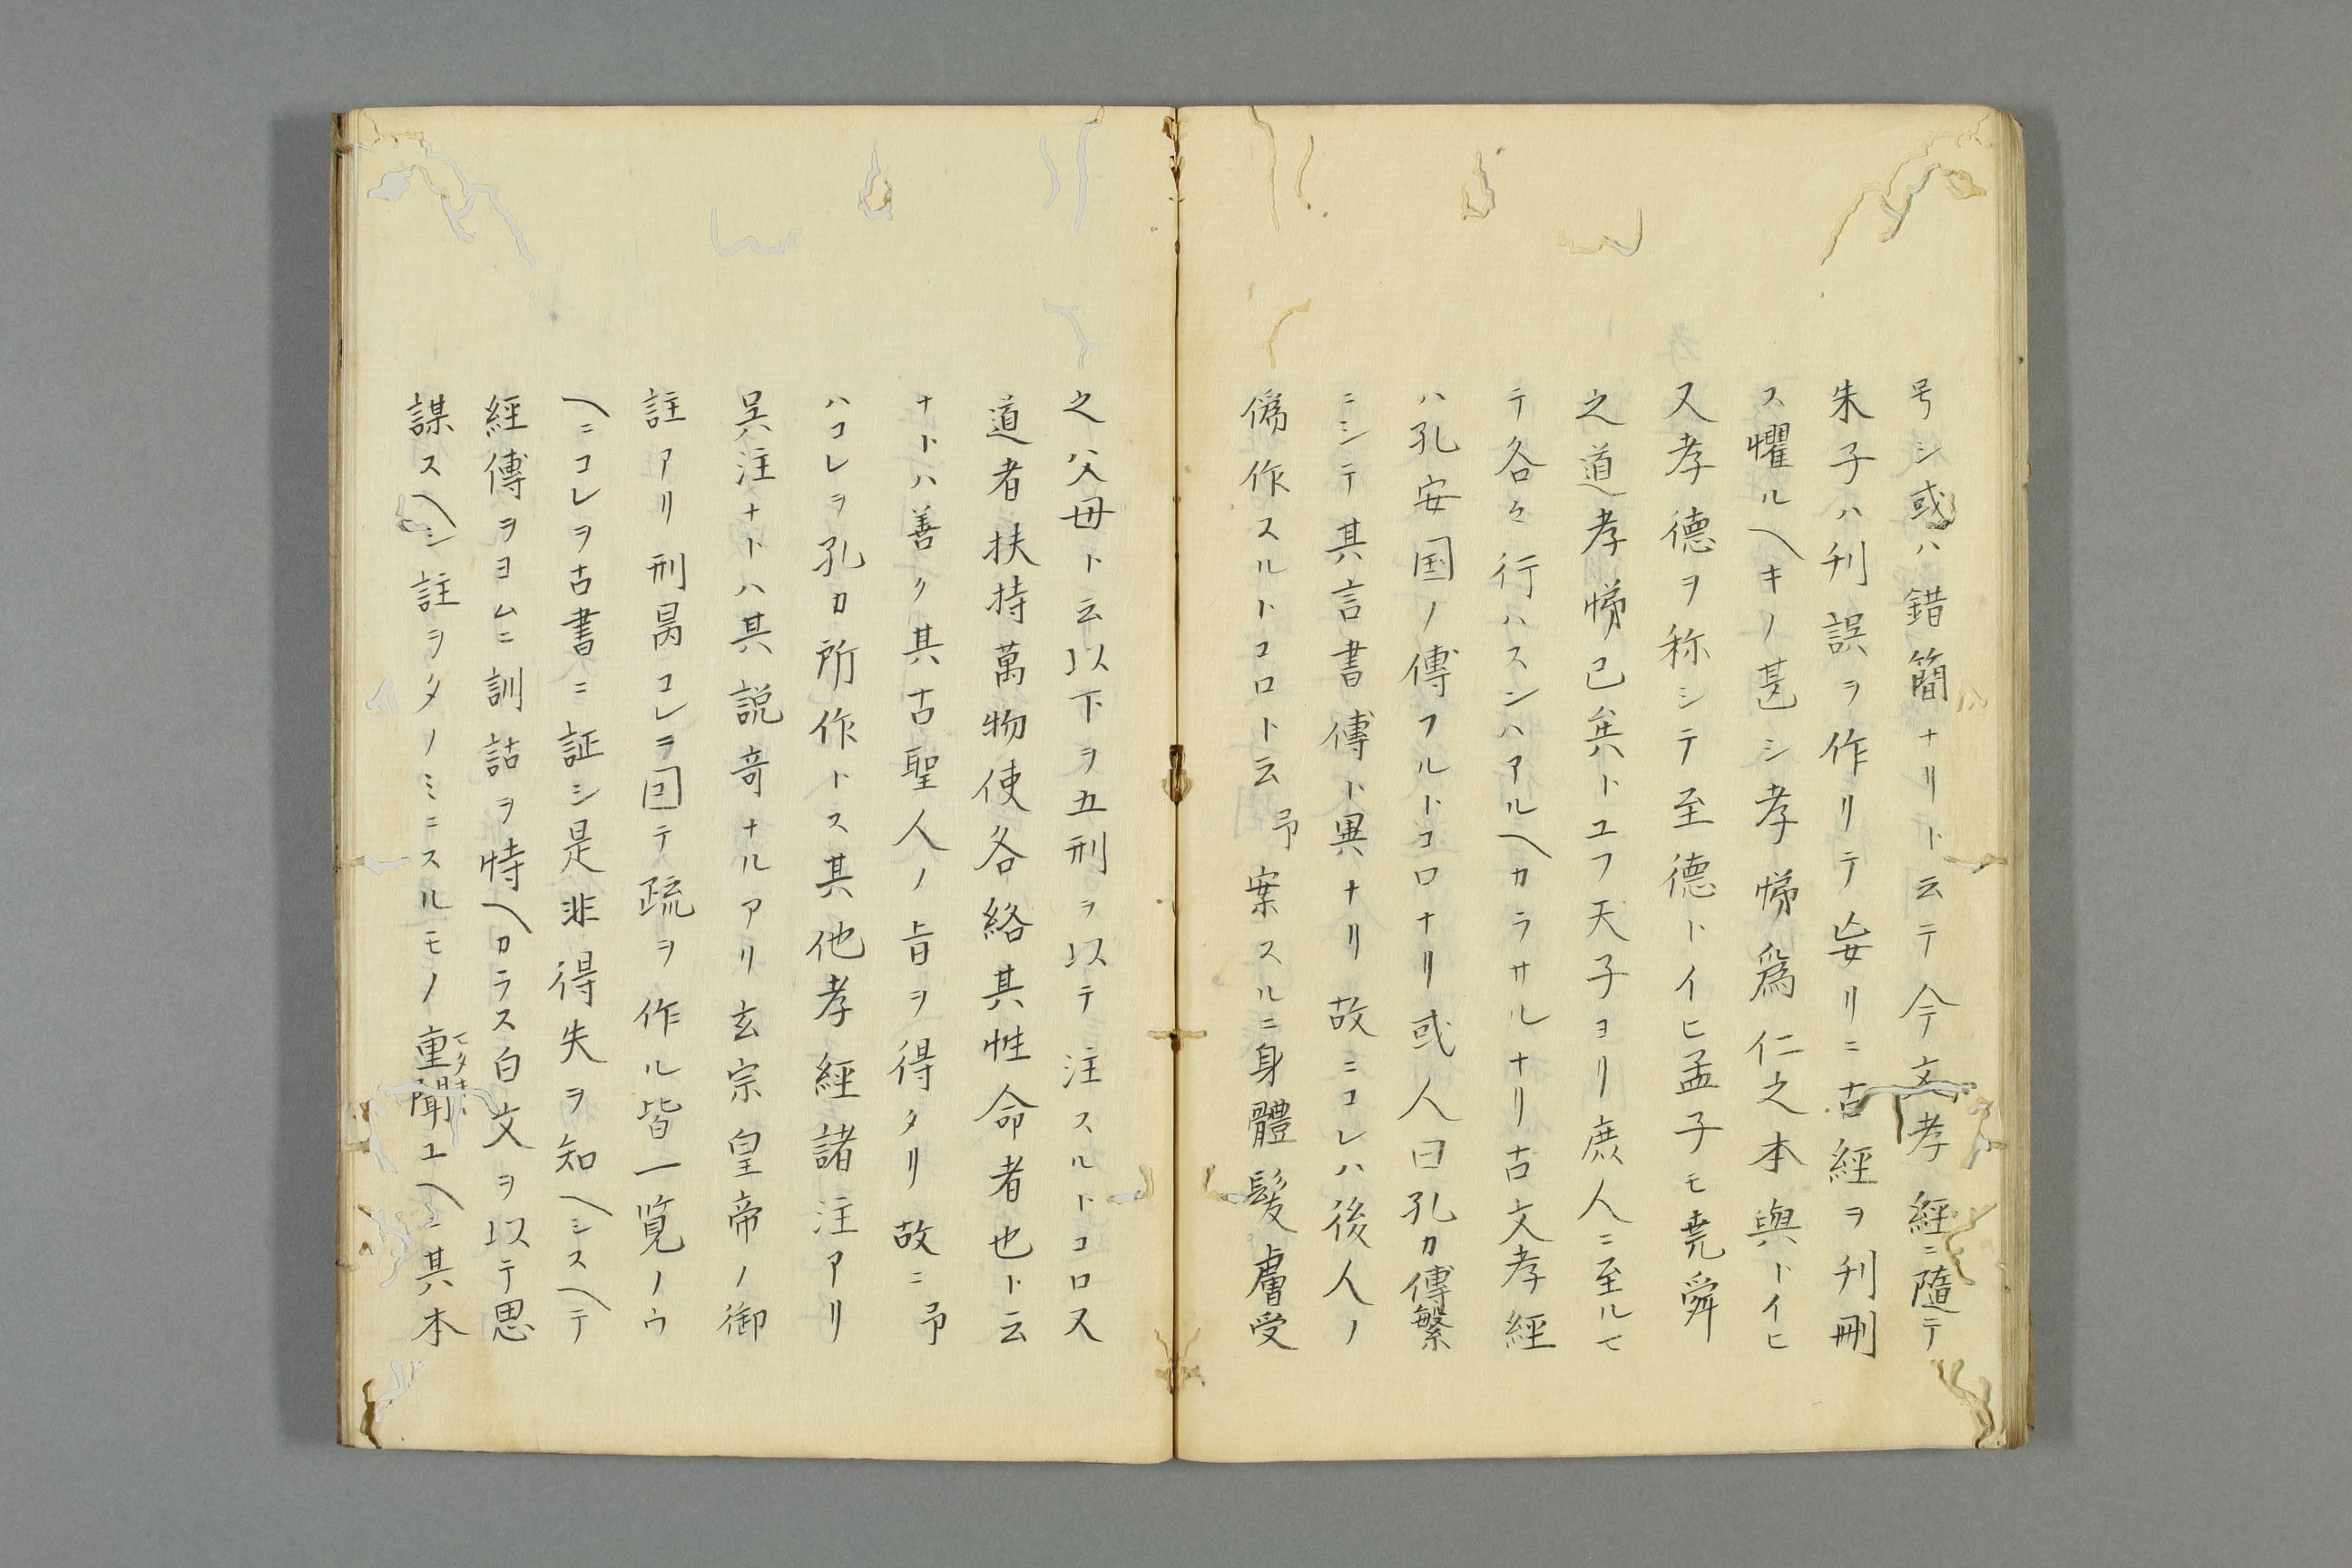 号シ或ハ錯簡ナリト云テ今文孝經ニ隨テ
朱子ハ刊誤ヲ作リテ妄リニ古經ヲ刊刪
ス懼ルヘキノ甚シ孝悌爲仁之本與トイヒ
又孝德ヲ称シテ至德トイヒ孟子モ堯舜
之道孝悌已矣トユフ天子ヨリ庶人ニ至ルマ
テ各々行ハスンハアルヘカラサルナリ古文孝經
ハ孔安国ノ傳フルトコロナリ或人曰孔カ傳繁
ニシテ其言書傳ト異ナリ故ニコレハ後人ノ
僞作スルトコロト云予案スルニ身體髮膚受
之父母ト云以下ヲ五刑ヲ以テ注スルトコロス
道者扶持萬物使各絡其性命者也ト云
ナトハ善ク其古聖人ノ旨ヲ得タリ故ニ予
ハコレヲ孔カ所作トス其他孝經諸注アリ
吳注ナトハ其説竒ナルアリ玄宗皇帝ノ御
註アリ刑昺コレヲ因テ疏ヲ作ル皆一覧ノウ
ヘニコレヲ古書ニ証シ是非得失ヲ知ヘシスヘテ
經傳ヲヨムニ訓詁ヲ恃ヘカラス白文ヲ以テ思
謀スヘシ註ヲタノミニスルモノ重聞ユヘニ其本